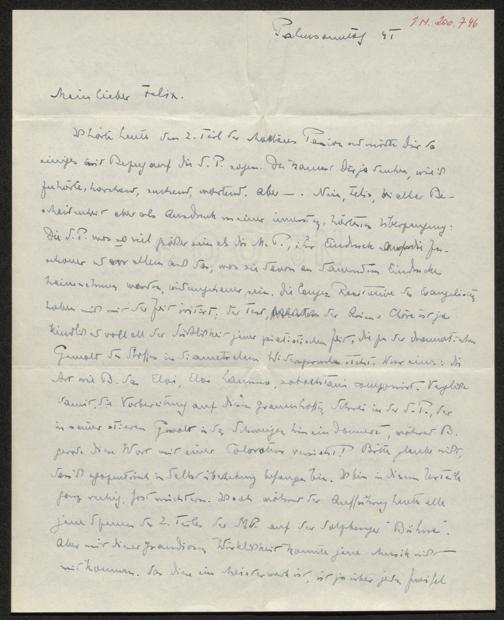 Palmsonntag 45
I.N. 200.746
Mein lieber Felix.
Ich hörte heute den 2. Teil der Matthäus Passion und möchte Dir so
einiges mit Bezug auf die S. P. sagen. Du kannst Dir ja denken, wie ich
zuhörte, horchend, suchend, wartend. Aber —. Nein, Felix, bei aller Be-
scheidenheit aber als Ausdruck meiner innersten, härtesten Überzeugung:
Die S. P. muss so viel größer sein als die M. P., ihr Eindruck auf die Zu-
schauer und vor allem auf das, was sie davon an dauerndem Eindrucke
heimnehmen werden, die langen Rezitative des Evangelisten
haben mich mit der Zeit irritiert; der Text, der Arien und Chöre ist ja
kindlich und voll all der Süßlichkeit jener pietistischen Zeit, die zu der dramatischen
Gewalt des Stoffes in diametralem Widerspruche steht. Nur eins: die
Art wie B. das Eloi, Eloi lamma, sabachtani componiert. Vergleiche
damit die Vorbereitung auf diesen grauenhaften Schrei in der S. P., der
in seiner Gewalt in das Schweigen hinein donnert, während B.
gerade diese Worte mit einer Coloratur versieht! Bitte glaube nicht,
dass ich in Selbstüberhebung befangen bin. Ich bin in diesem Urteile
ganz ruhig, fast nüchtern. Ich sah während der Aufführung heute alle
jene Szenen des 2. Teiles der MP. auf der Salzburger "Bühne".
Aber mit dieser grandiosen Wirklichkeit konnte jene Musik nicht
mitkommen. Dass diese ein Meisterwerk ist, ist ja über jeden Zweifel